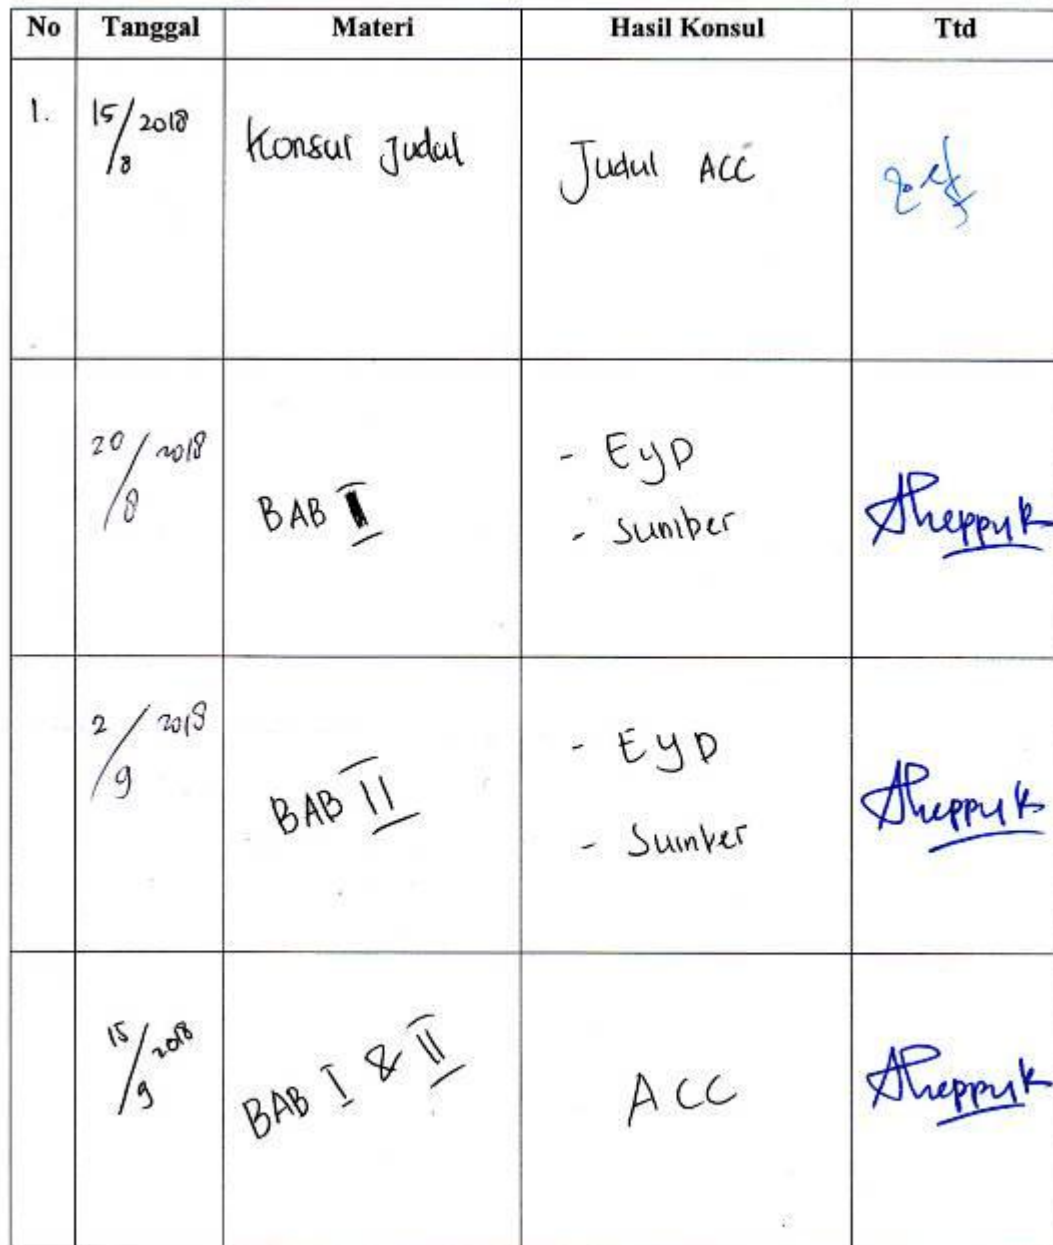 No Tanggal Materi Hasil Konsul Ttd
1. 15/8 2018 Konsul Judul Judul ACC
20/8 2018 BAB I - EYD
- Sumber
2/9 2018 BAB II - EYD
- Sumber
15/9 2018 BAB I & II ACC